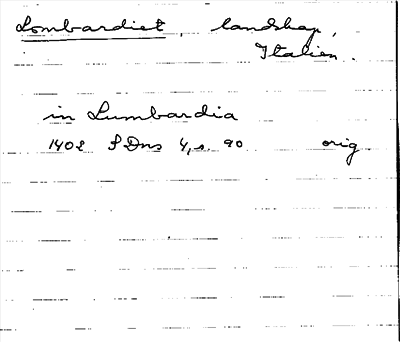 Lombardiet, landskap,
Italien.
in Lumbardia
1402 SDns 4, s. 90 orig.